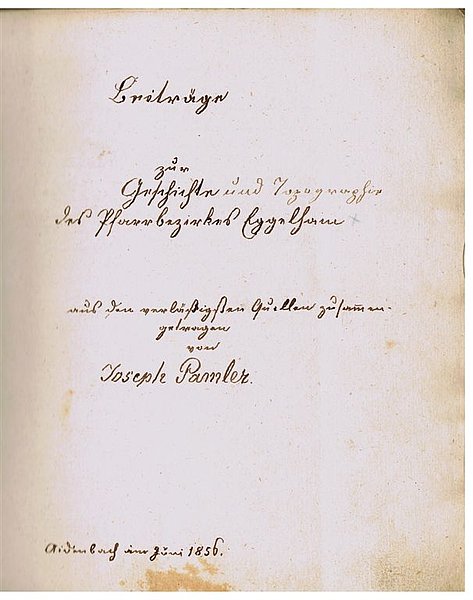 Beiträge
zur
Geschichte und Topographie
des Pfarrbezirkes Eggelham
aus den verläßigsten Quellen zusam̄en-
getragen
von
Joseph Pamler.
Aidenbach im Juni 1856.